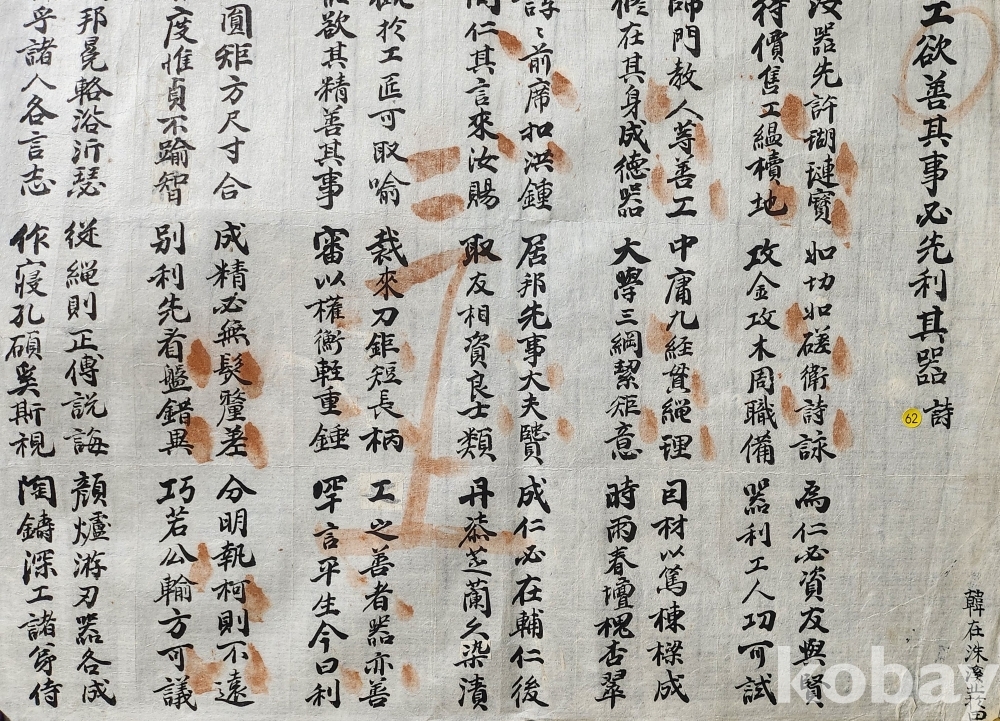 工欲善其事必先利其器 詩
62
汝器先許瑚璉寶 如切如磋衛詩詠 爲仁必資友與賢
待價售工韞櫝地 攻金攻木周職備 器利工人功可試
師門敎人等善工 中庸九經貫繩理 因材以篤棟樑成
修在其身成德器 大學三綱絜矩意 時雨春壇槐杏翠
諄〻前席扣洪鍾 居邦先事大夫賢 成仁必在輔仁後
問仁其言來汝賜 取友相資良士類 丹漆芝蘭久染漬
觀於工匠可取喩 裁來刀鉅短長柄 工之善者器亦善
欲其精善其事 審以權衡輕重錘 罕言平生今日利
圓矩方尺寸合 成精必無髮釐差 分明執柯則不遠
度惟貞不踰智 別利先看盤錯異 巧若公輸方可議
邦冕輅浴沂瑟 從繩則正傅說誨 顔爐游刃器各成
乎諸人各言志 作寢孔碩奚斯視 陶鑄深工諸弟侍
韓在洙
kobay